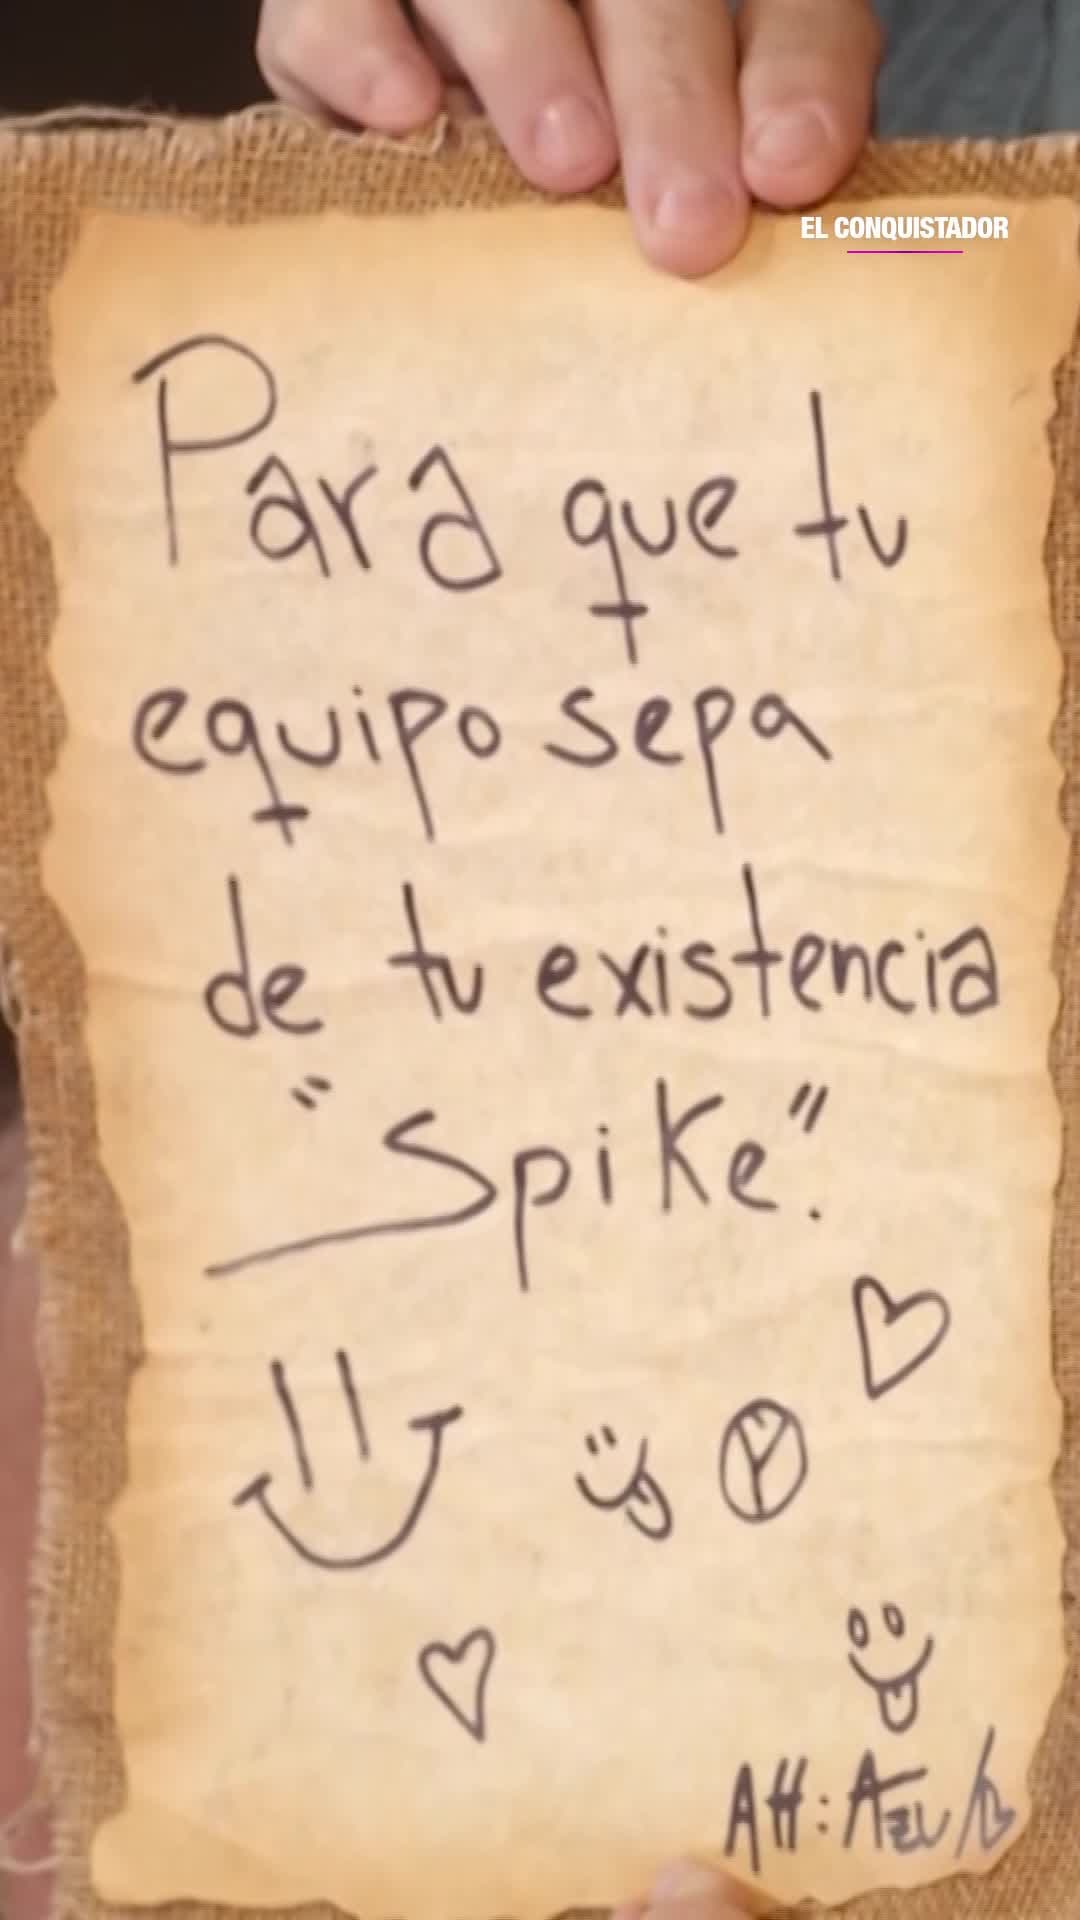 EL CONQUISTADOR
Para que tu
equipo sepa
de tu existencia
"Spike".
Att: Azul